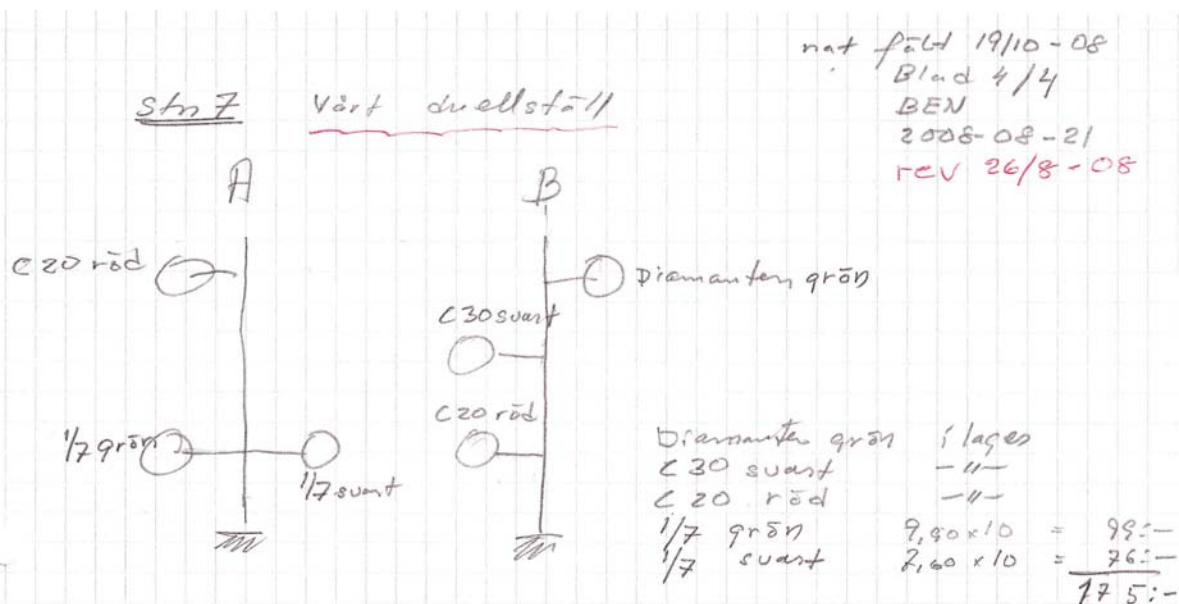 nat fält 19/10-08
Blad 4/4
BEN
2008-08-21
rev 26/8-08
stn 7 Vårt duellställ
A B
C20 röd
Diamanten grön
C30 svart
C20 röd
1/7 grön
1/7 svart
Diamanten grön i lager
C30 svart -"-
C20 röd -"-
1/7 grön 9,90x10 = 99:-
1/7 svart 7,60x10 = 76:-
175:-